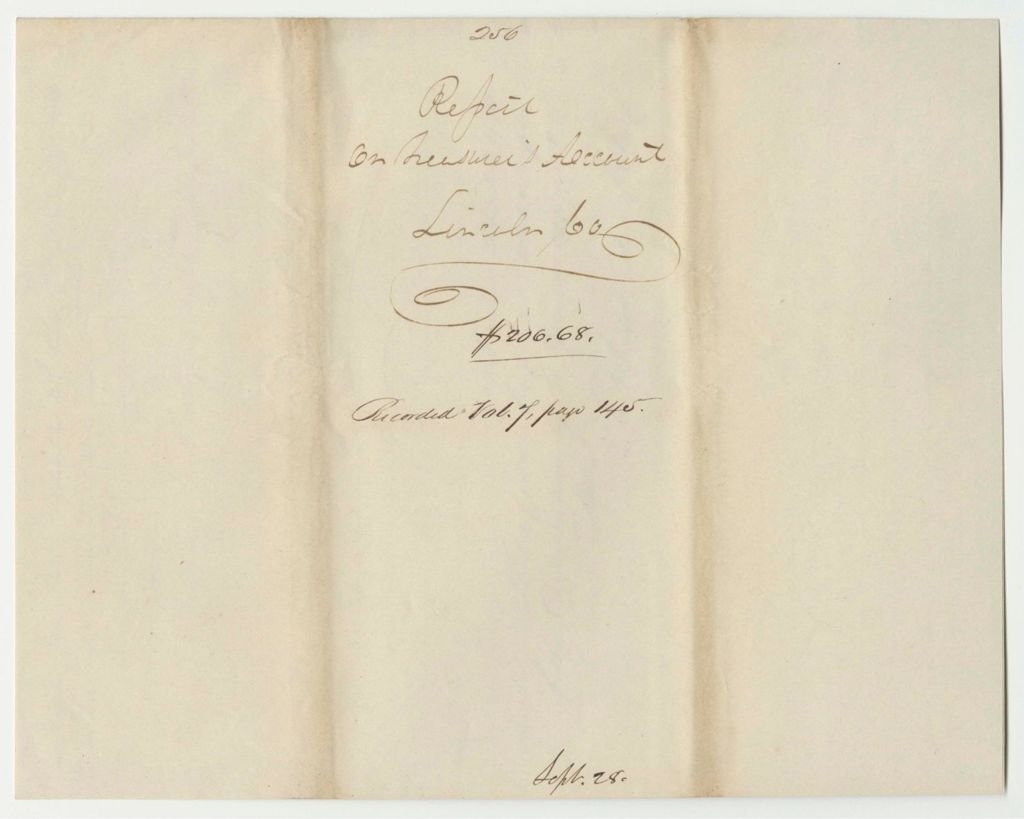 256
Report
On Treasurer's Account
Lincoln Co
$206.68.
Recorded Vol. 7, page 145.
Sept. 28.